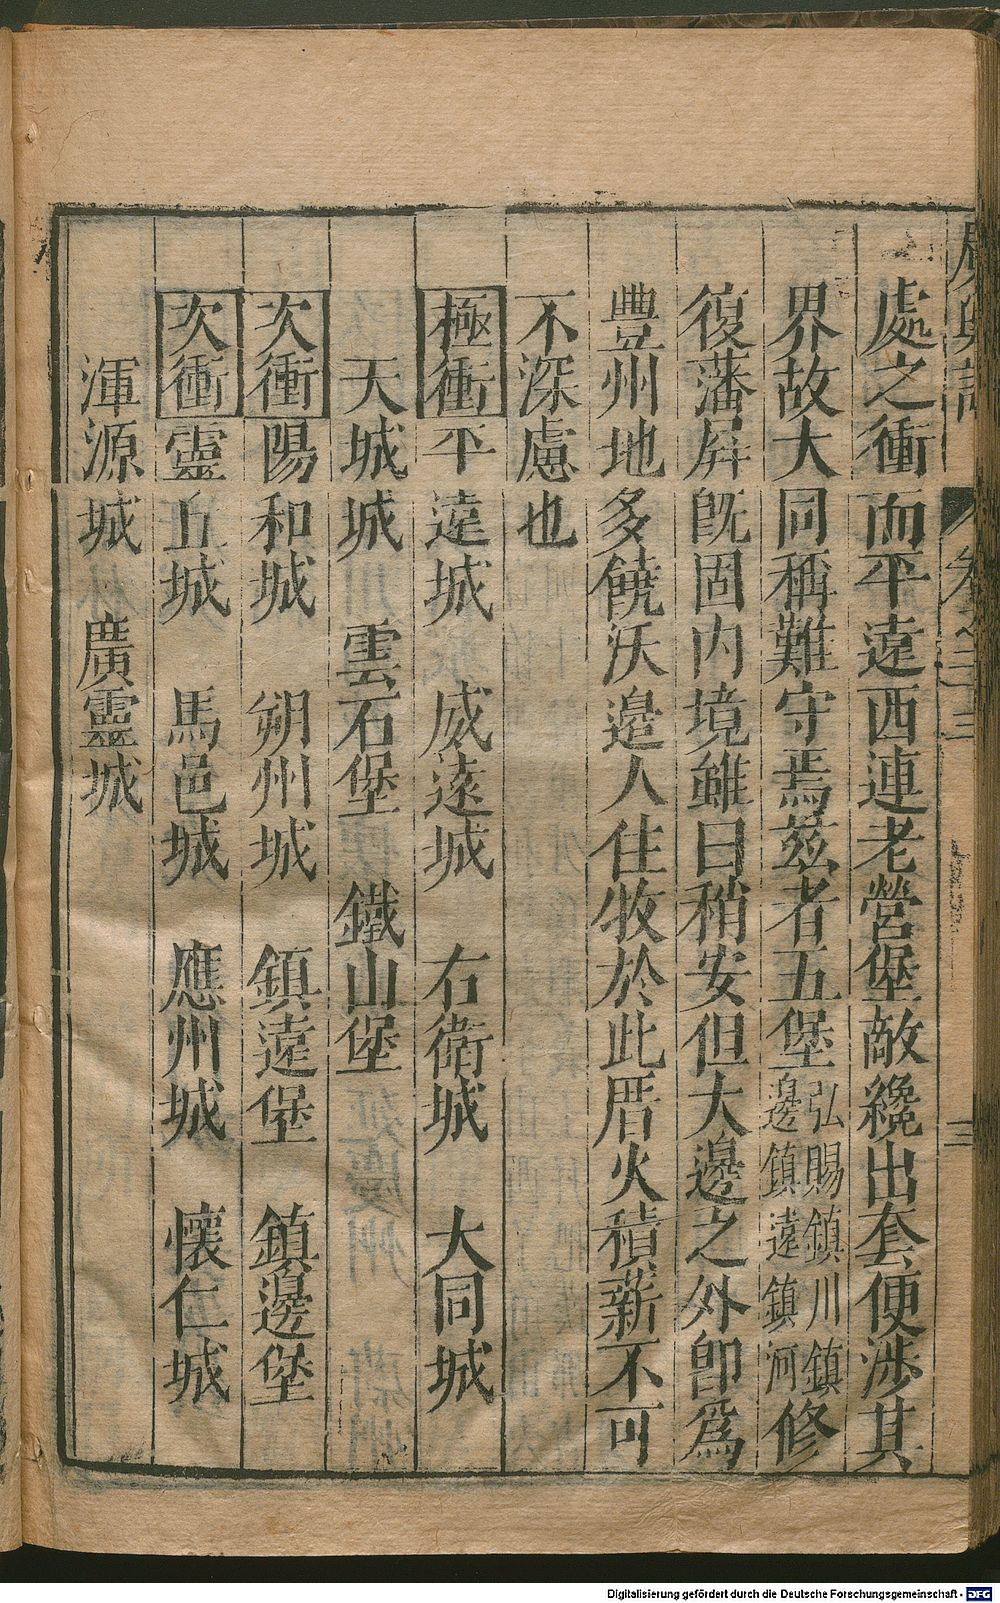 廣輿記 卷之三 三
處之衝而平遠西連老營堡敵纔出套便涉其
界故大同稱難守焉兹者五堡弘賜鎮川鎮邊鎮遠鎮河修
復藩屏旣固內境雖曰稍安但大邊之外卽爲
豊州地多饒沃邉人住牧於此厝火積薪不可
不深慮也
極衝平遠城 威遠城 右衛城 大同城
天城城 雲石堡 鐵山堡
次衝陽和城 朔州城 鎮遠堡 鎮邊堡
次衝靈丘城 馬邑城 應州城 懷仁城
渾源城 廣靈城
Digitalisierung gefördert durch die Deutsche Forschungsgemeinschaft - DFG